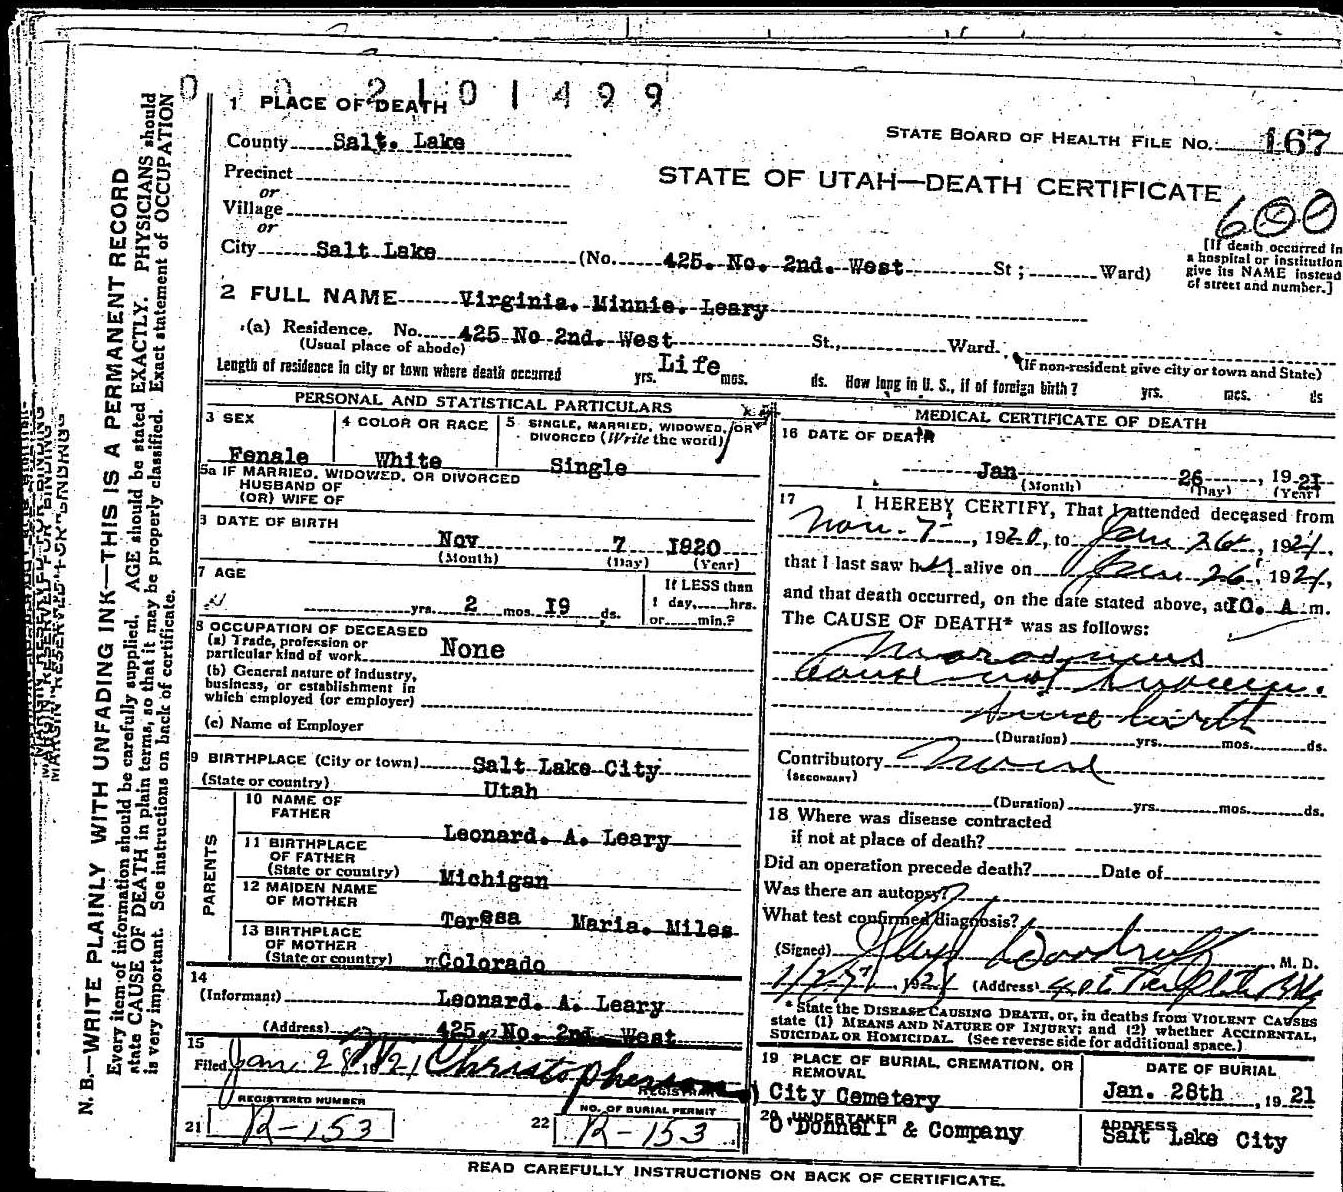 0 0 2101499
1 PLACE OF DEATH
County Salt. Lake
STATE BOARD OF HEALTH FILE No. 167
Precinct
or
Village
or
STATE OF UTAH—DEATH CERTIFICATE
600
[If death occurred in a hospital or institution give its NAME instead of street and number.]
City Salt Lake (No. 425. No. 2nd. West St ; Ward)
2 FULL NAME Virginia. Minnie. Leary
(a) Residence. No. 425 No 2nd. West St., Ward.
(Usual place of abode) (If non-resident give city or town and State)
Length of residence in city or town where death occurred yrs. Life mos. ds. How long in U. S., if of foreign birth? yrs. mos. ds
PERSONAL AND STATISTICAL PARTICULARS
3 SEX Female
4 COLOR OR RACE White
5 SINGLE, MARRIED, WIDOWED, OR DIVORCED (Write the word) Single
5a IF MARRIED, WIDOWED, OR DIVORCED
HUSBAND OF
(OR) WIFE OF
DATE OF BIRTH
Nov 7 1920
(Month) (Day) (Year)
7 AGE
yrs. 2 mos. 19 ds.
If LESS than
1 day, hrs.
or min.?
8 OCCUPATION OF DECEASED
(a) Trade, profession or
particular kind of work None
(b) General nature of industry,
business, or establishment in
which employed (or employer)
(c) Name of Employer
9 BIRTHPLACE (City or town) Salt Lake City
(State or country) Utah
PARENTS
10 NAME OF
FATHER Leonard. A. Leary
11 BIRTHPLACE
OF FATHER
(State or country) Michigan
12 MAIDEN NAME
OF MOTHER Teresa Maria. Miles
13 BIRTHPLACE
OF MOTHER
(State or country) Colorado
14
(Informant) Leonard. A. Leary
(Address) 425. No. 2nd. West
15
Filed Jan. 28 1921 Christopherson
REGISTRAR
REGISTERED NUMBER
21 R-153
NO. OF BURIAL PERMIT
22 R-153
MEDICAL CERTIFICATE OF DEATH
16 DATE OF DEATH
Jan 26, 1921
(Month) (Day) (Year)
17 I HEREBY CERTIFY, That I attended deceased from
Nov. 7, 1920, to Jan 26, 1921,
that I last saw her alive on Jan. 26, 1921,
and that death occurred, on the date stated above, at 10. A m.
The CAUSE OF DEATH* was as follows:
Marasmus
cause not known.
since birth
(Duration) yrs. mos. ds.
Contributory None
(SECONDARY)
(Duration) yrs. mos. ds.
18 Where was disease contracted
if not at place of death?
Did an operation precede death? Date of
Was there an autopsy?
What test confirmed diagnosis?
(Signed) Woodruff, M. D.
1/27, 1921 (Address) Templeton Bldg
* State the DISEASE CAUSING DEATH, or, in deaths from VIOLENT CAUSES
state (1) MEANS AND NATURE OF INJURY; and (2) whether ACCIDENTAL,
SUICIDAL OR HOMICIDAL. (See reverse side for additional space.)
19 PLACE OF BURIAL, CREMATION, OR
REMOVAL
City Cemetery
DATE OF BURIAL
Jan. 28th, 1921
20 UNDERTAKER
O'Donnell & Company
ADDRESS
Salt Lake City
READ CAREFULLY INSTRUCTIONS ON BACK OF CERTIFICATE.
N. B.—WRITE PLAINLY WITH UNFADING INK—THIS IS A PERMANENT RECORD
Every item of information should be carefully supplied. AGE should be stated EXACTLY. PHYSICIANS should
state CAUSE OF DEATH in plain terms, so that it may be properly classified. Exact statement of OCCUPATION
is very important. See instructions on back of certificate.
MARGIN RESERVED FOR BINDING